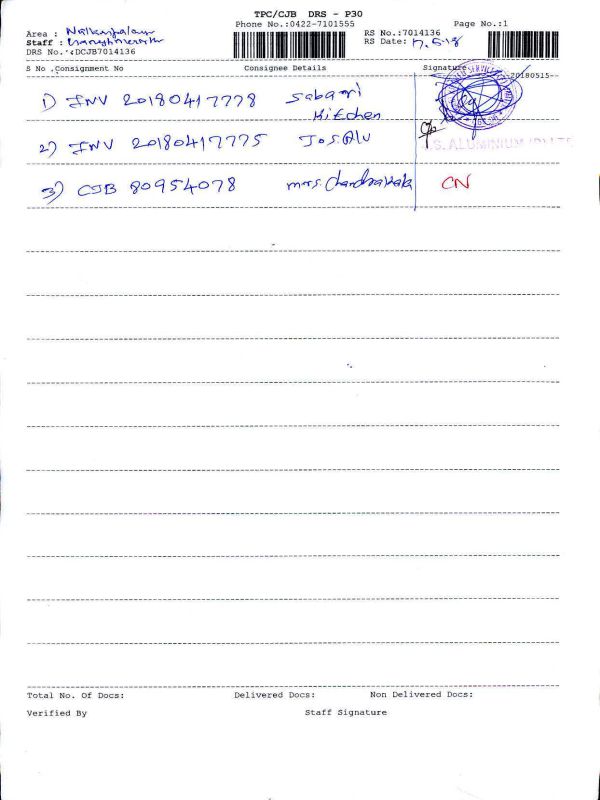 TPC/CJB DRS - P30
Phone No.:0422-7101555
Page No.:1
Area :
Staff :
DRS No.:DCJB7014136
RS No.:7014136
RS Date: 17.5.18
S No .Consignment No Consignee Details Signature
-20180515-
1) INV 20180417778 Sabari Kitchen
2) INV 20180417775 Jos Alu
S. ALUMINIUM
3) CJB 80954078 mrs. Chandrakala CN
Total No. Of Docs: Delivered Docs: Non Delivered Docs:
Verified By Staff Signature